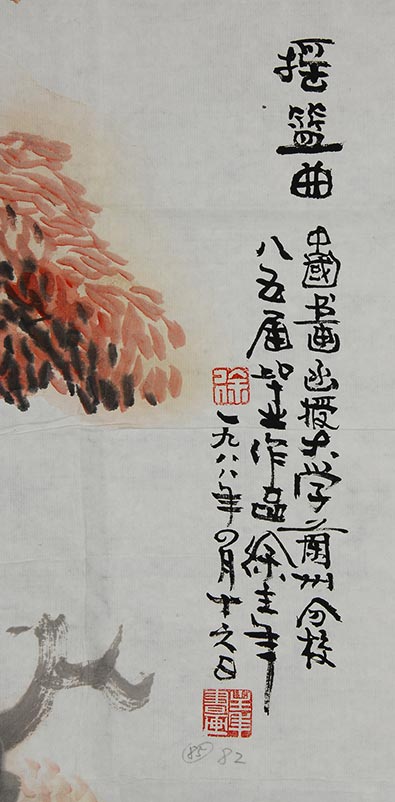 摇篮曲
中國书畫函授大学蘭州分校
八五届毕业作品徐
徐
一九八八年四月十六日
85 82